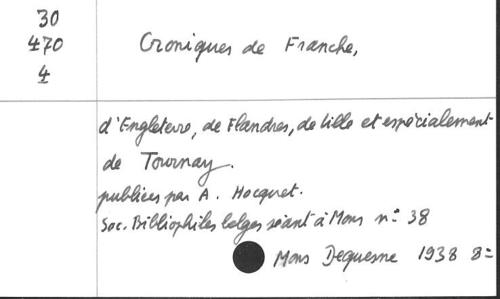 30
470
4
Croniques de Franche,
d'Engleterre, de Flandres, de Lille et espécialement
de Tournay.
publiées par A. Hocquet.
Soc. Bibliophiles belges séant à Mons n° 38
Mons Dequesne 1938 8=